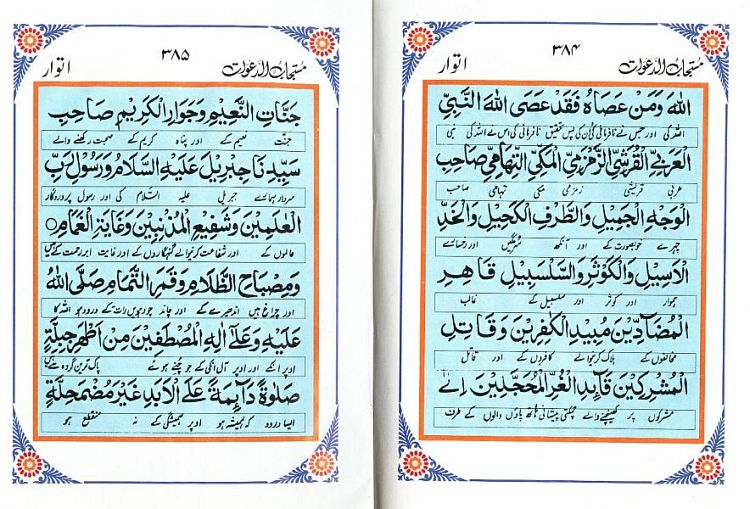 ۳۸۴
مستجاب الدعوات
اتوار
اللهَ وَمَنْ عَصَاهُ فَقَدْ عَصَى اللهَ النَّبِيِّ
اللہ کی اور جس نے نافرمانی کی ان کی پس تحقیق نافرمانی کی اس نے اللہ کی نبی
الْعَرَبِيِّ الْقُرَشِيِّ الزَّمْزَمِيِّ الْمَكِّيِّ التِّهَامِيِّ صَاحِبِ
عربی قریشی زمزمی مکی تہامی صاحب
الْوَجْهِ الْجَمِيْلِ وَالطَّرْفِ الْكَحِيْلِ وَالْخَدِّ
چہرے خوبصورت کے اور آنکھ سرمگیں اور رخسارے
الْاَسِيْلِ وَالْكَوْثَرِ وَالسَّلْسَبِيْلِ قَاهِرِ
ہموار اور کوثر اور سلسبیل کے غالب
الْمُضَآدِّيْنَ مُبِيْدِ الْكٰفِرِيْنَ وَقَاتِلِ
مخالفوں کے ہلاک کرنیوالے کافروں کے اور قاتل
الْمُشْرِكِيْنَ قَآئِدِ الْغُرِّ الْمُحَجَّلِيْنَ اِلٰى
مشرکوں پر کھینچنے والے چمکتی پیشانی ہاتھ پاؤں والوں کے طرف
۳۸۵
مستجاب الدعوات
اتوار
جَنَّاتِ النَّعِيْمِ وَجِوَارِ الْكَرِيْمِ صَاحِبِ
جنت نعیم کے اور پناہ کریم کے صحبت رکھنے والے
سَيِّدِنَا جِبْرِيْلَ عَلَيْهِ السَّلَامُ وَرَسُوْلِ رَبِّ
سردار ہمارے جبریل علیہ السلام کی اور رسول پروردگار
الْعٰلَمِيْنَ وَشَفِيْعِ الْمُذْنِبِيْنَ وَغَايَةِ الْغَمَامِ ○
عالموں کے اور شفاعت کرنیوالے گنہگاروں کے اور غایت ابر رحمت کے
وَمِصْبَاحِ الظَّلَامِ وَقَمَرِ التَّمَامِ صَلَّى اللهُ
اور چراغ ہیں اندھیرے کے اور چاند چودہویں رات کے درود ہو اللہ کا
عَلَيْهِ وَعَلٰى اٰلِهِ الْمُصْطَفَيْنَ مِنْ اَطْهَرِ جِبِلَّةٍ
اوپر انکے اور اوپر آل انکی کے جو چنے ہوئے پاک ترین گروہ سے
صَلٰوةً دَآئِمَةً عَلَى الْاَبَدِ غَيْرَ مُضْمَحِلَّةٍ
ایسا درود کہ ہمیشہ ہو اوپر ہمیشگی کے نہ منقطع ہو